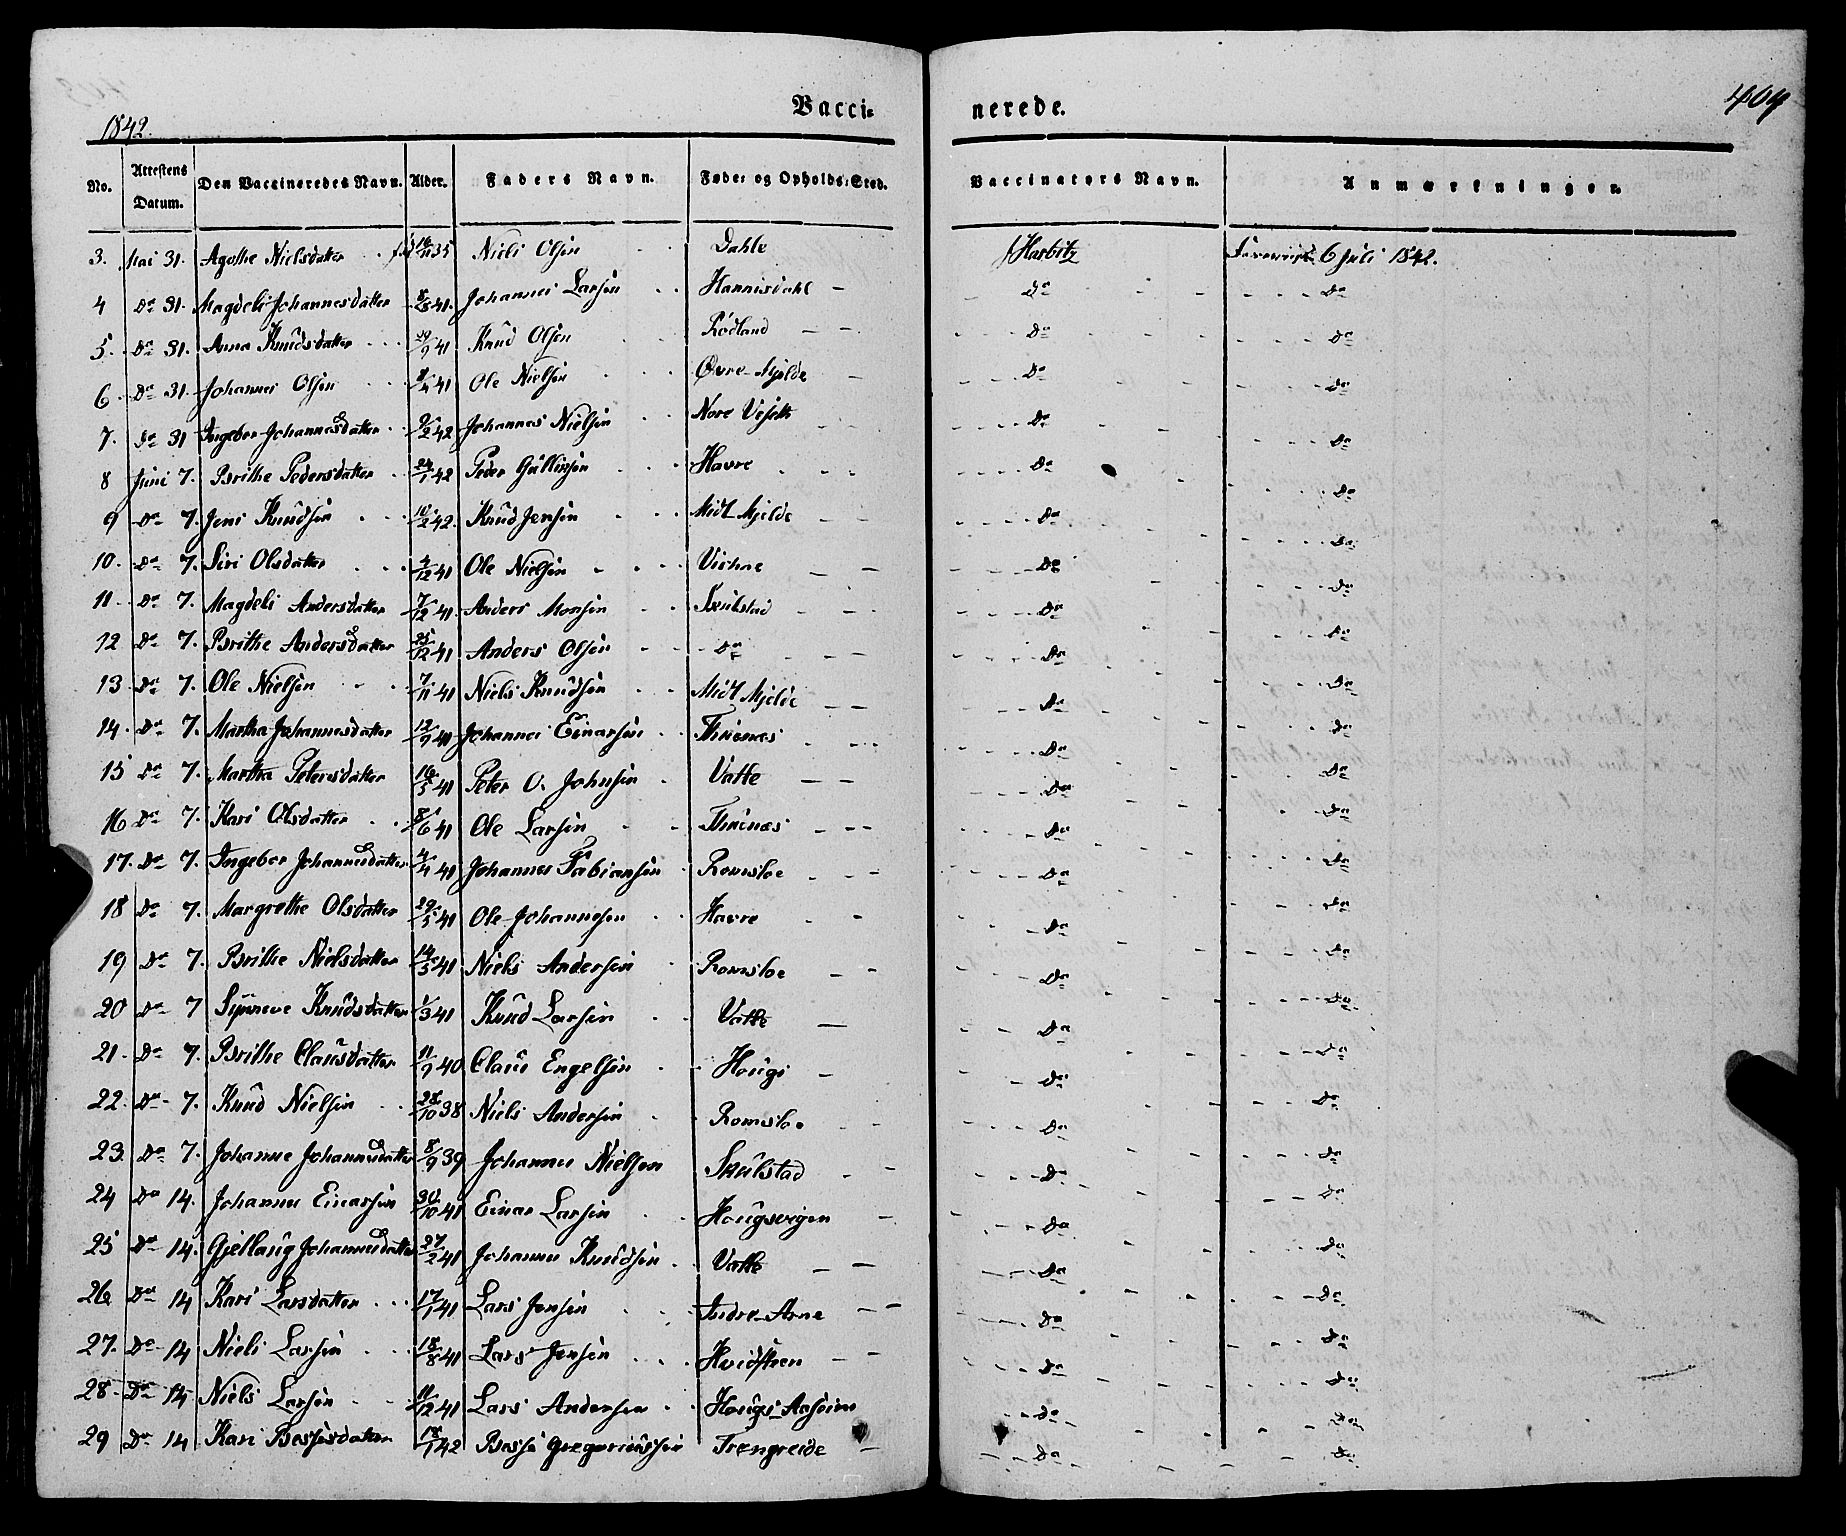 1842. Vacci- nerede. 404
No. Attestens Datum. Den Vaccineredes Navn. Alder. Faders Navn. Føde- og Opholds-Sted. Vaccinators Navn. Anmærkninger.
3. Mai 31. Agathe Nielsdatter 16/11 35 Niels Olsen Dahle Harbitz 6 Juli 1842.
4 Do 31. Magdeli Johannesdatter 8/8 41. Johannes Larsen Hannisdahl Do Do
5. Do 31. Anna Knudsdatter 29/9 41 Knud Olsen Rödland Do Do
6. Do 31. Johannes Olsen 41 Ole Nielsen Øvre-Mjelde Do Do
7. Do 31 Ingebor Johannesdatter 9/2 42 Johannes Nielsen Nore Do Do
8 Juni 7. Brithe Pedersdatter 24/1 42 Peder Gullicksen Havre Do Do
9 Do 7. Jens Knudsen 10/2 42. Knud Jensen Midt Mjelde Do Do
10. Do 7. Siri Olsdatter 4/12 41 Ole Nielsen Do Do
11. Do 7. Magdeli Andersdatter 7/12 41. Anders Monsen Skulstad Do Do
12 Do 7. Brithe Andersdatter 25/12 41 Anders Olsen Do Do Do
13. Do 7. Ole Nielsen 7/11 41 Niels Knudsen Midt Mjelde Do Do
14. Do 7. Martha Johannesdatter 12/9 41 Johannes Einarsen Tirenæs Do Do
15 Do 7. Martha Petersdatter 16/5 41 Peter O. Johnsen Vatle Do Do
16 Do 7. Kari Olsdatter 8/6 41 Ole Larsen Do Do
17. Do 7. Ingebor Johannesdatter 4/4 41 Johannes Fabiansen Romsloe Do Do
18 Do 7. Margrethe Olsdatter 29/5 41 Ole Johannesen Havre Do Do
19 Do 7. Brithe Nielsdatter 14/3 41 Niels Andersen Romsloe Do Do
20 Do 7 Synneve Knudsdatter 1/3 41 Knud Larsen Vatle Do Do
21. Do 7. Brithe Clausdatter 11/9 40 Claus Engelsen Hougs Do Do
22. Do 7. Knud Nielsen 28/10 38 Niels Andersen Romsloe Do Do
23. Do 7. Johanne Johannesdatter 8/9 39 Johannes Nielsen Skulstad Do Do
24 Do 14. Johannes Einarsen 30/10 41 Einar Larsen Do Do
25 Do 14. Gjellaug Johannesdatter 27/2 41 Johannes Knudsen Vatle Do Do
26 Do 14 Kari Larsdatter 17/1 41 Lars Jensen Indre-Arne Do Do
27. Do 14 Niels Larsen 18/8 41 Lars Jensen Hvidsteen Do Do
28 Do 14 Niels Larsen 11/12 41 Lars Andersen Do Do
29 Do 14 Kari Bessesdatter 18/1 42 Besse Gregoriussen Trængreide Do Do